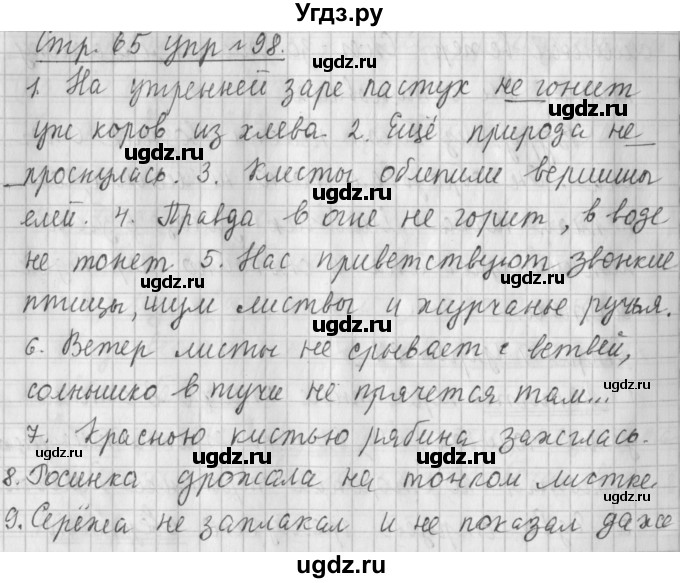 Угдз.ру
Стр. 65 упр №98.
1. На утренней заре пастух не гонит
уж коров из хлева. 2. Ещё природа не
проснулась. 3. Клесты облепили вершины
елей. 4. Правда в огне не горит, в воде
не тонет 5. Нас приветствуют звонкие
птицы, шум листвы и журчанье ручья.
6. Ветер листы не срывает с ветвей,
солнышко в тучи не прячется там...
7. Красною кистью рябина зажглась.
8. Росинка дрожала на тонком листке.
9. Серёжа не заплакал и не показал даже
ugdz.ru ugdz.ru ugdz.ru
ugdz.ru ugdz.ru
ugdz.ru ugdz.ru ugdz.ru
ugdz.ru ugdz.ru
ugdz.ru ugdz.ru ugdz.ru
ugdz.ru ugdz.ru
ugdz.ru ugdz.ru ugdz.ru
ugdz.ru